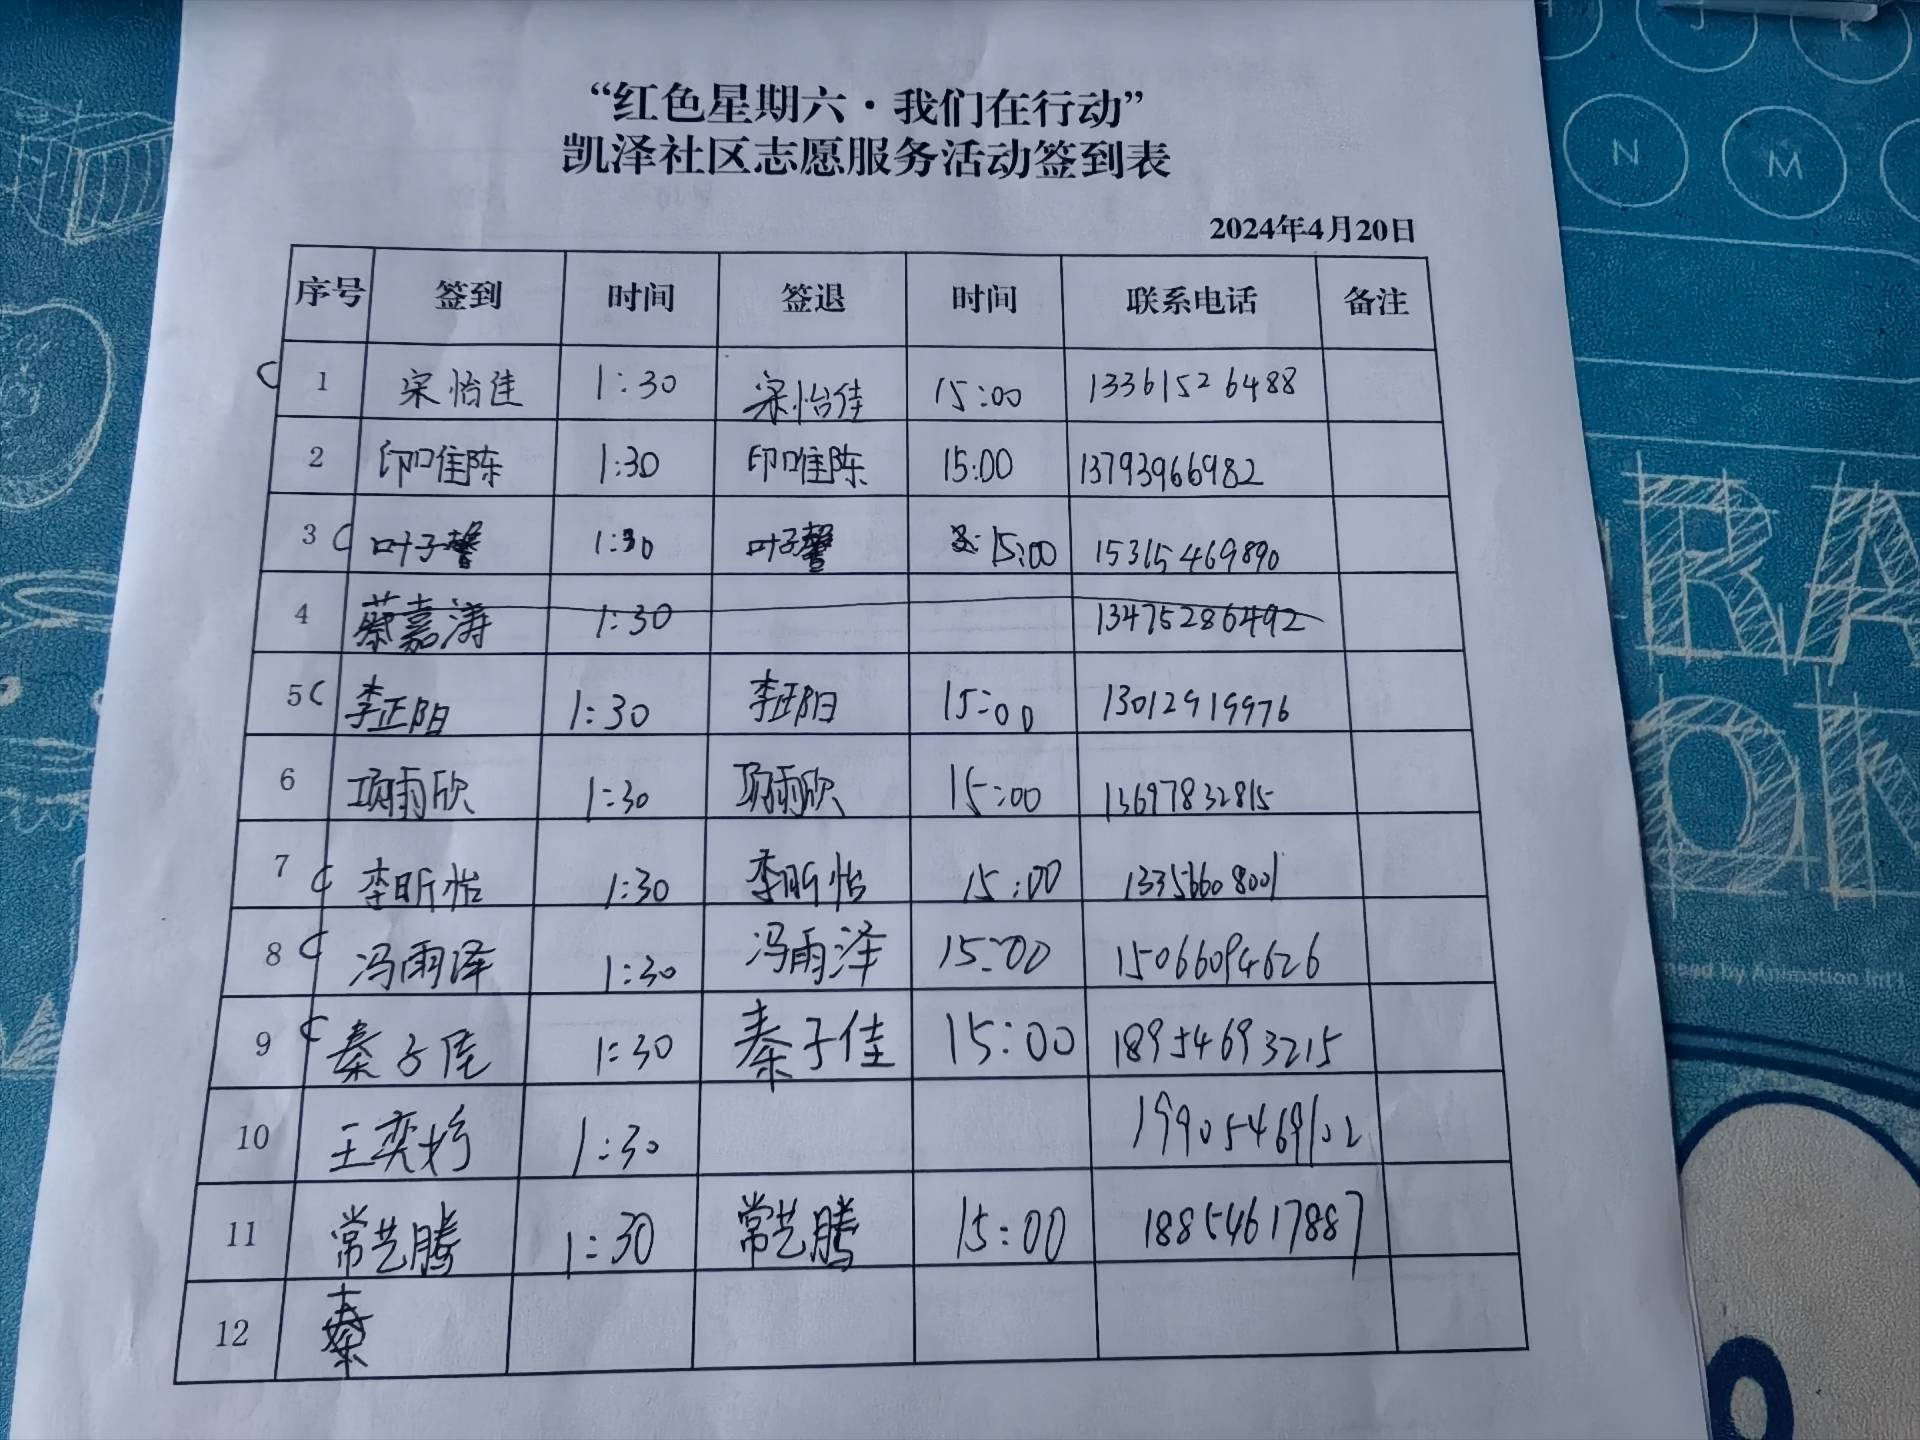 “红色星期六·我们在行动”
凯泽社区志愿服务活动签到表
2024年4月20日
序号 签到 时间 签退 时间 联系电话 备注
1 宋怡佳 1:30 宋怡佳 15:00 13361526488
2 印唯陈 1:30 印唯陈 15:00 13793966982
3 叶子馨 1:30 叶子馨 15:00 15315469890
4 蔡嘉涛 1:30 13475286492
5 李正阳 1:30 李正阳 15:00 13012919976
6 项雨欣 1:30 项雨欣 15:00 13697832815
7 李昕怡 1:30 李昕怡 15:00 13356608001
8 冯雨泽 1:30 冯雨泽 15:00 15066094626
9 秦子佳 1:30 秦子佳 15:00 18954693215
10 王奕 1:30 19905469102
11 常艺腾 1:30 常艺腾 15:00 18854617887
12
J K
N M
RA
ON
need by Animation Int'l